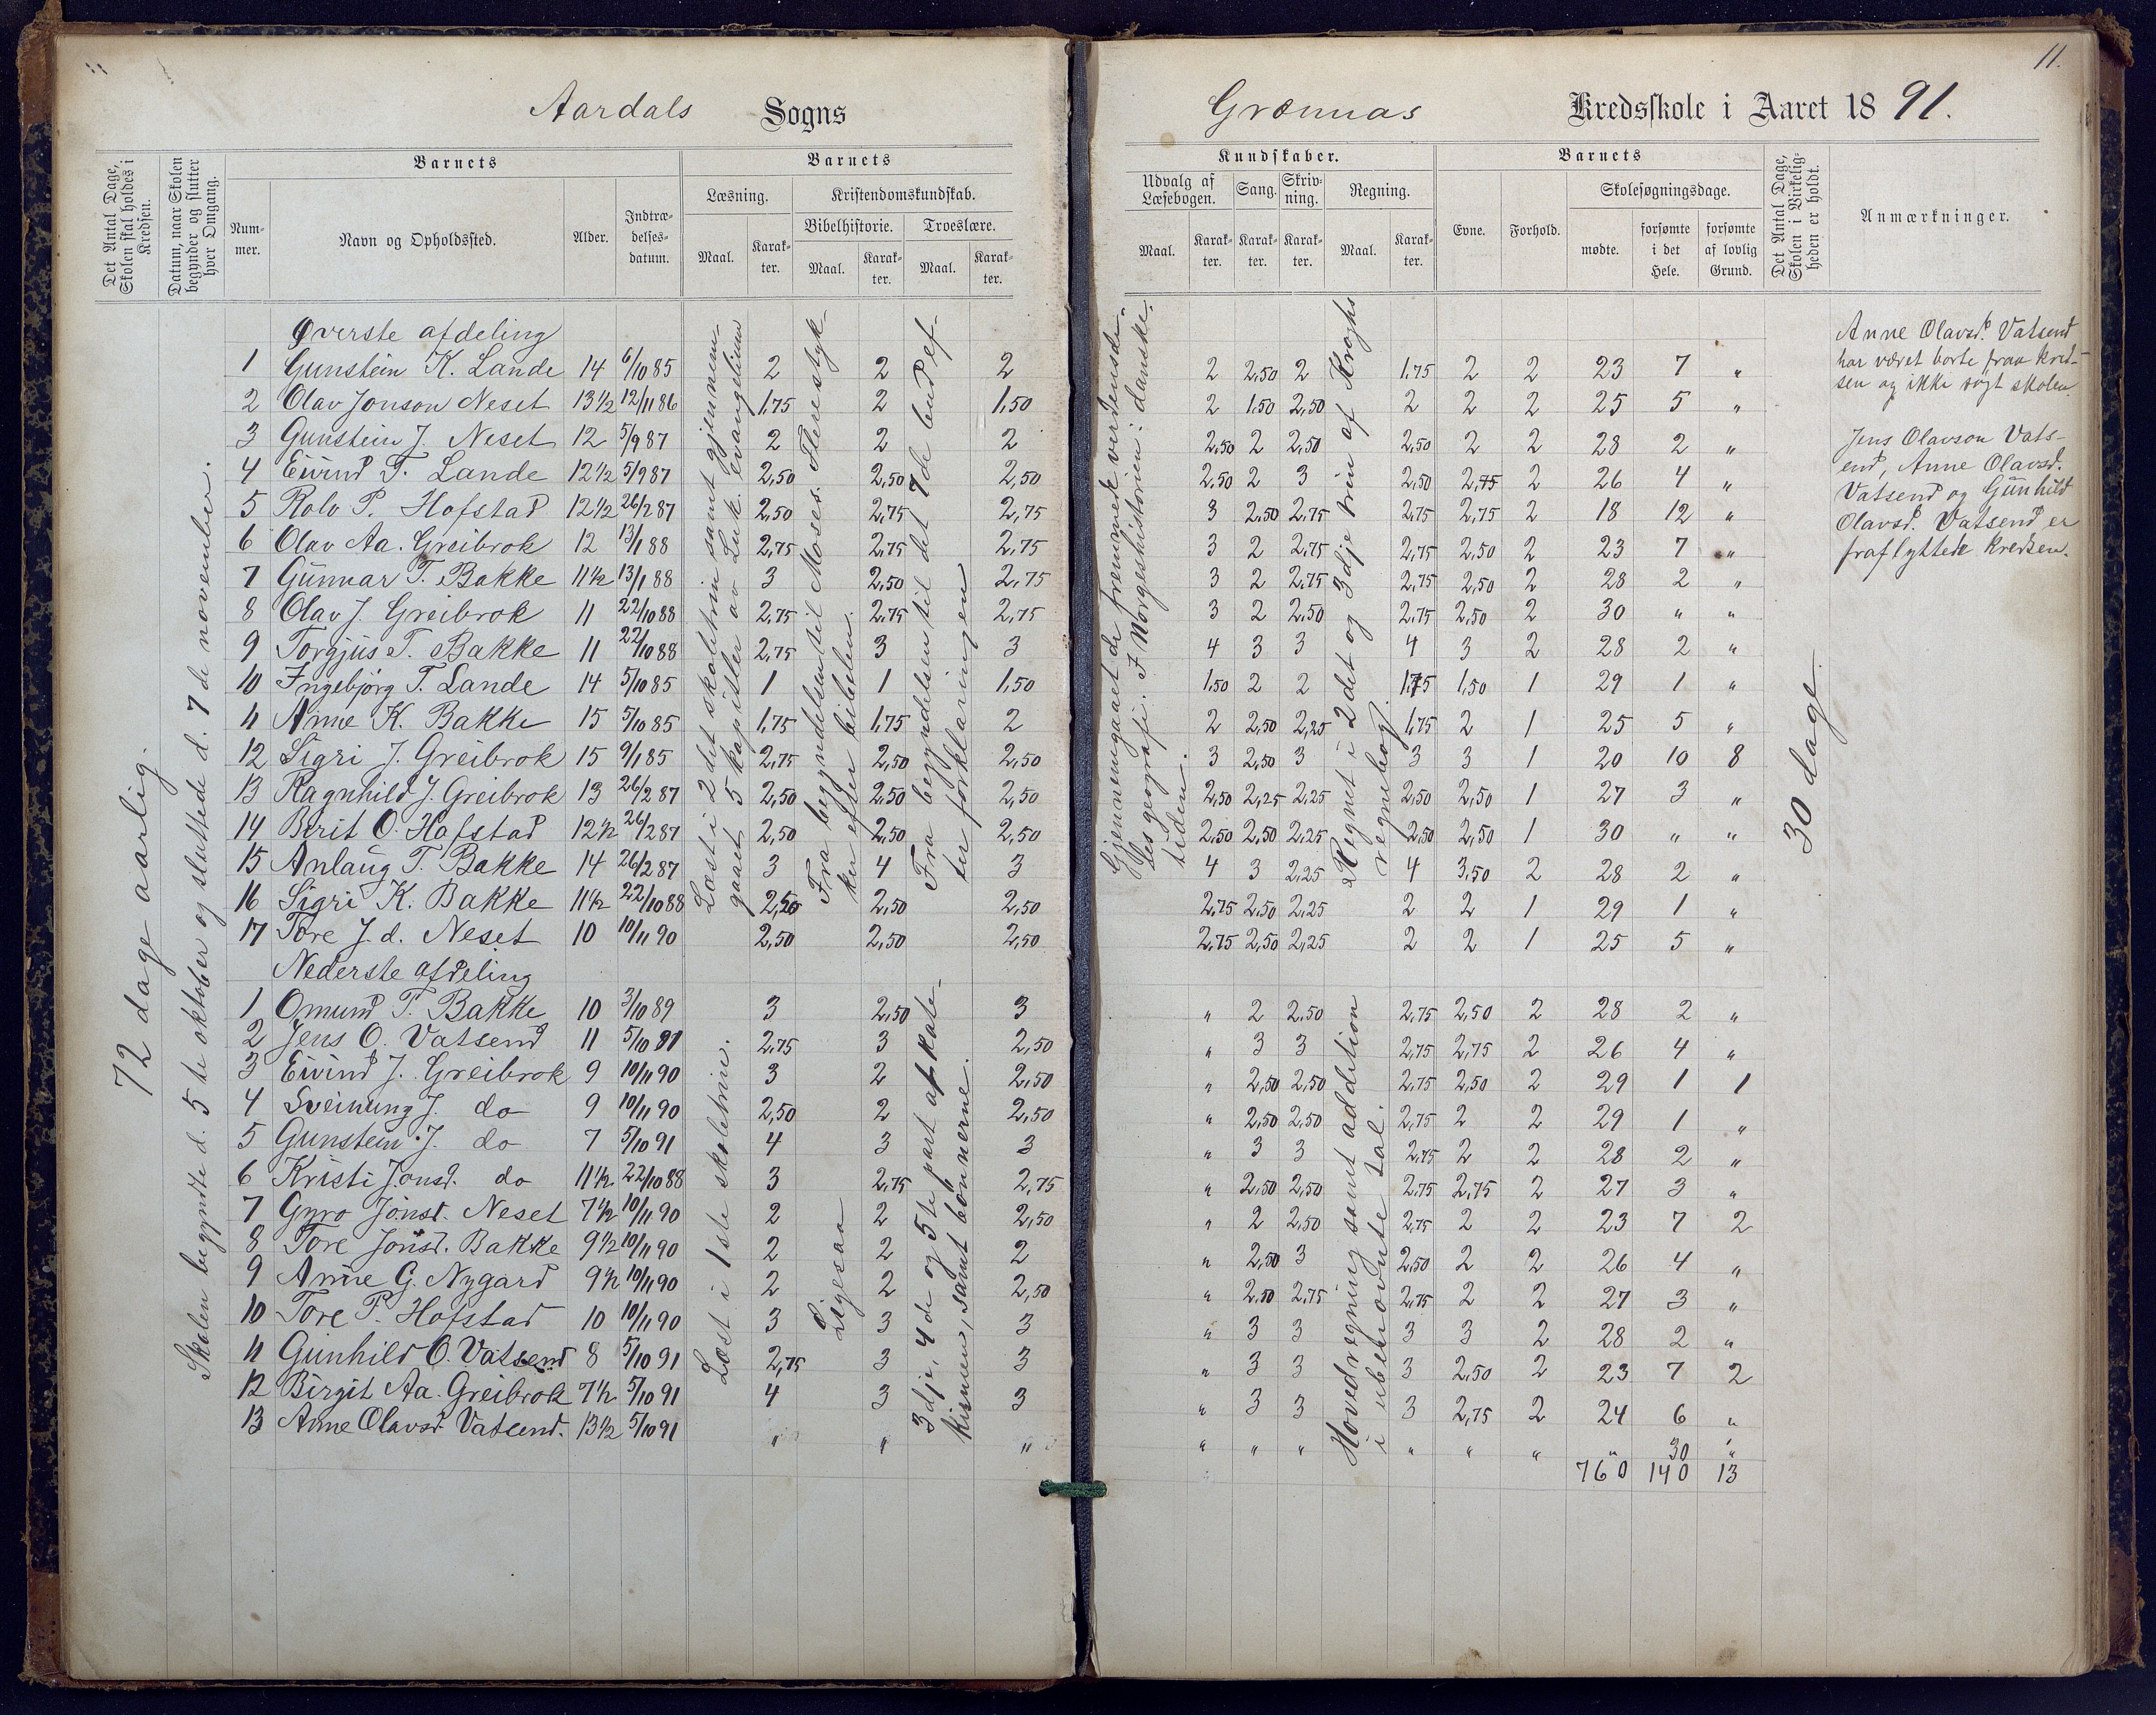 11.
Aardals Sogns
Grønnas Kredsskole i Aaret 1891.
Det Antal Dage, Skolen skal holdes i Kredsen.
Datum, naar Skolen begynder og slutter hver Omgang.
Barnets
Nummer.
Navn og Opholdssted.
Alder.
Indtrædelsesdatum.
Barnets
Læsning.
Maal.
Karakter.
Kristendomskundskab.
Bibelhistorie.
Maal.
Karakter.
Troeslære.
Maal.
Karakter.
Kundskaber.
Udvalg af Læsebogen.
Maal.
Karakter.
Sang.
Karakter.
Skrivning.
Karakter.
Regning.
Maal.
Karakter.
Barnets
Evne.
Forhold.
Skolesøgningsdage.
mødte.
forsømte i det Hele.
forsømte af lovlig Grund.
Det Antal Dage, Skolen i Virkeligheden er holdt.
Anmærkninger.
72 dage aarlig.
Skolen begyndte d. 5te oktober og sluttede d. 7de november.
Øverste afdeling
1 Gunstein K. Lande 14 6/10 85 2 2 2 2 2,50 2 1,75 2 2 23 7 "
2 Olav Jonson Neset 13½ 12/11 86 1,75 2 1,50 2 1,50 2,50 2 2 2 25 5 "
3 Gunstein J. Neset 12 5/9 87 2 2 2 2,50 2 2,50 2,50 2 2 28 2 "
4 Eivind T. Lande 12½ 5/9 87 2,50 2,50 2,50 2,50 2 3 2,50 2,75 2 26 4 "
5 Rolv P. Hofstad 12½ 26/2 87 2,50 2,75 2,75 3 2,50 2,75 2,75 2,75 2 18 12 "
6 Olav Aa. Greibrok 12 13/1 88 2,75 2,75 2,75 3 2 2,75 2,75 2,50 2 23 7 "
7 Gunnar T. Bakke 11½ 13/1 88 3 2,50 2,75 3 2 2,75 2,75 2,50 2 28 2 "
8 Olav J. Greibrok 11 22/10 88 2,75 2,75 2,75 3 2 2,50 2,75 2,50 2 30 " "
9 Torgjus T. Bakke 11 22/10 88 2,75 3 3 4 3 3 4 3 2 28 2 "
10 Ingebjørg T. Lande 14 5/10 85 1 1 1,50 1,50 2 2 1,75 1,50 1 29 1 "
11 Anne K. Bakke 15 5/10 85 1,75 1,75 2 2 2,50 2,25 1,75 2 1 25 5 "
12 Sigri J. Greibrok 15 9/1 85 2,75 2,50 2,50 3 2,50 3 3 3 1 20 10 8
13 Ragnhild J. Greibrok 13 26/2 87 2,50 2,50 2,50 2,50 2,25 2,25 2,50 2,50 1 27 3 "
14 Berit O. Hofstad 12½ 26/2 87 2,50 2,50 2,50 2,50 2,50 2,25 2,50 2,50 1 30 " "
15 Anlaug T. Bakke 14 26/2 87 3 4 3 4 3 2,25 4 3,50 2 28 2 "
16 Sigri K. Bakke 11½ 22/10 88 2,50 2,50 2,50 2,75 2,50 2,25 2 2 1 29 1 "
17 Tore J.d. Neset 10 10/11 90 2,50 2,50 2,50 2,75 2,50 2,25 2 2 1 25 5 "
Læst i 2det skoletrin samt gjennemgaaet 5 kapitler av Luk. evangelium
Fra begyndelsen til Moses. Flere stykker efter bibelen.
Fra begyndelsen til det 7de bud efter forklaringen
Gjennemgaaet de fremmede verdensdeles geografi. I Norgeshistorien: dansketiden.
Regnet i 2det og 3dje trin af Kroghs regnebog.
30 dage.
Anne Olavsd. Vatsend
har været borte fraa kredsen
og ikke søgt skolen.
Jens Olavson Vatsend,
Anne Olavsd.
Vatsend og Gunhild
Olavsd. Vatsend er
fraflyttede kredsen.
Nederste afdeling
1 Omund T. Bakke 10 3/10 89 3 2,50 3 " 2 2,50 2,75 2,50 2 28 2 "
2 Jens O. Vatsend 11 5/10 91 2,75 3 2,50 " 3 3 2,75 2,75 2 26 4 "
3 Eivind J. Greibrok 9 10/11 90 3 2 2,50 " 2,50 2,50 2,75 2,50 2 29 1 1
4 Sveinung J. do 9 10/11 90 2,50 2 2,50 " 2,50 2,50 2,75 2 2 29 1 "
5 Gunstein J. do 7 5/10 91 4 3 3 " 3 3 2,75 2 2 28 2 "
6 Kristi Jonsd. do 11½ 22/10 88 3 2,75 2,75 " 2,50 2,50 2,75 2,75 2 27 3 "
7 Gyro Jonsd. Neset 7½ 10/11 90 2 2 2,50 " 2 2,50 2,75 2 2 23 7 2
8 Tore Jonsd. Bakke 9½ 10/11 90 2 2 2 " 2,50 3 2,50 2 2 26 4 "
9 Anne G. Nygard 9½ 10/11 90 2 2 2,50 " 2,50 2,75 2,75 2 2 27 3 "
10 Tore P. Hofstad 10 10/11 90 3 3 3 " 3 3 3 3 2 28 2 "
11 Gunhild O. Vatsend 8 5/10 91 2,75 3 3 " 3 3 3 2,50 2 23 7 2
12 Birgit Aa. Greibrok 7½ 5/10 91 4 3 3 " 3 3 3 2,75 2 24 6 "
13 Anne Olavsd. Vatsend. 13½ 5/10 91 " " " " " " " " " " 30 "
760 140 13
Læst i 1ste skoletrin.
Ligesaa
3dje, 4de og 5te part af katekismen, samt bønnerne.
Hovedregning samt addition i ubenævnte tal.